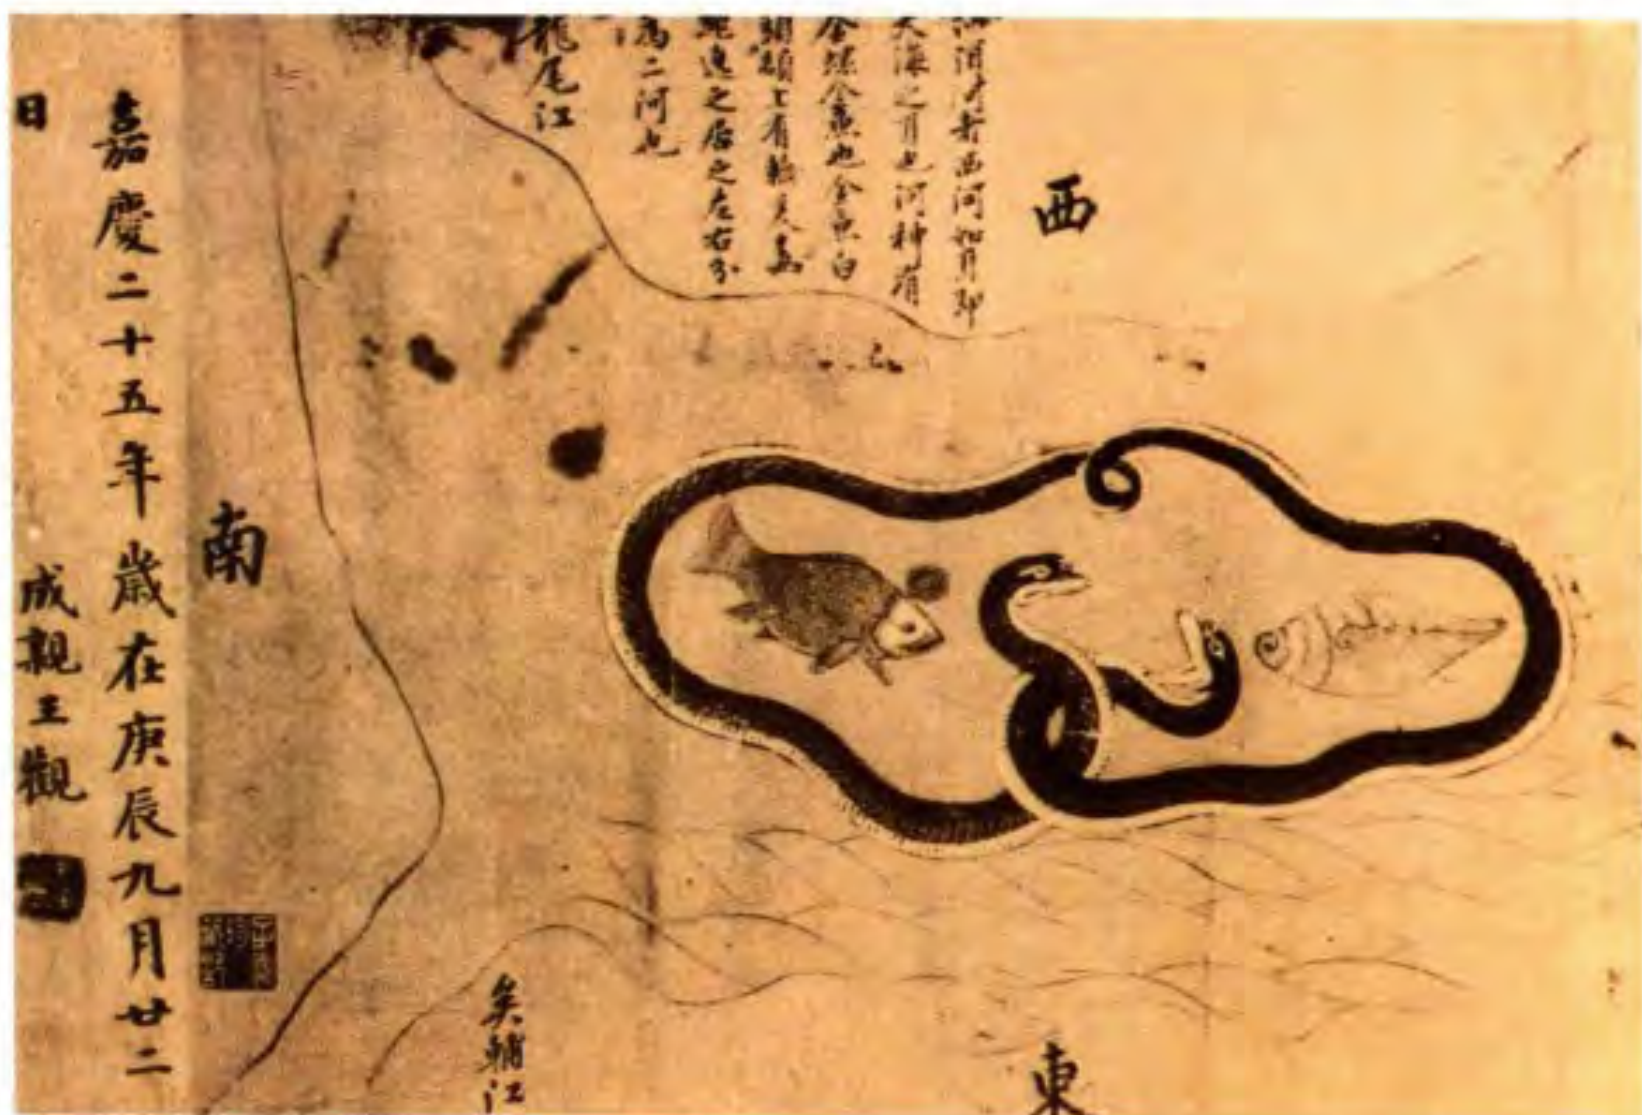 西
河者西河如耳即
大海之耳也河神有
金螺金魚也金魚白
頭額上有輪爰毒
蛇遶之居之左右分
為二河也
龍尾江
東
矣輔江
南
嘉慶二十五年歲在庚辰九月廿二
日
成親王觀